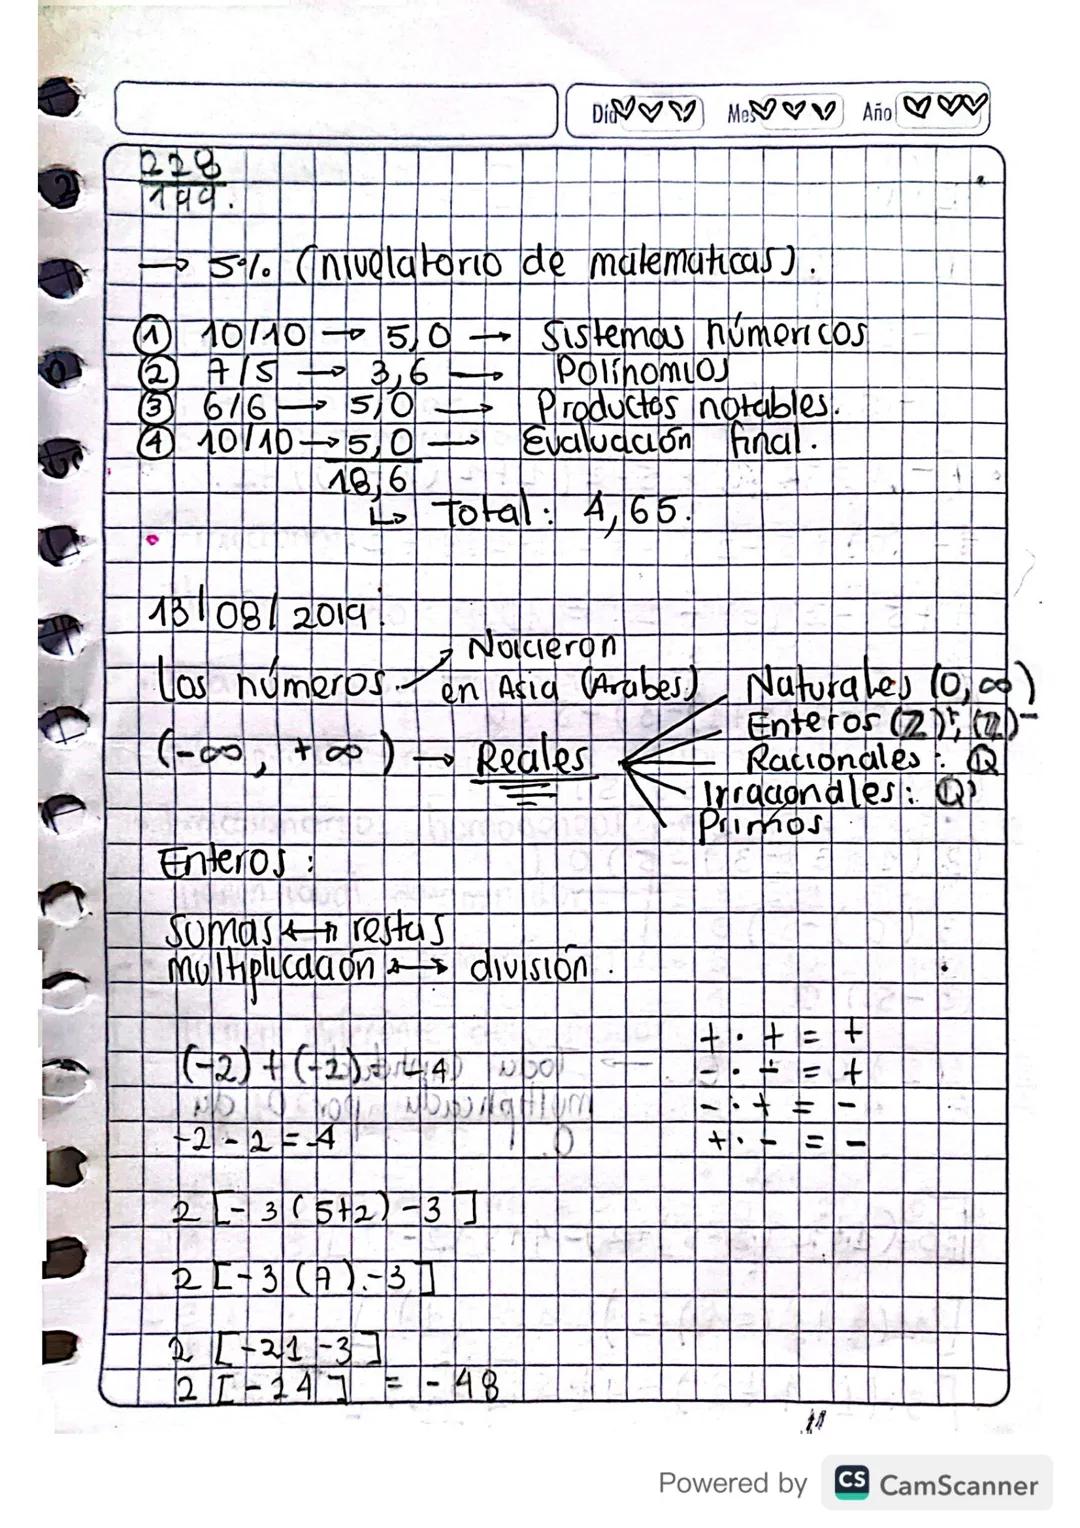 Día Mes Año
228
199.
→ 5%. (nivelatorio de matematicas).
① 10/10 → 5,0 → Sistemas númericos
② 7/5 → 3,6 → Polinomios
③ 6/6 → 5,0 → Productos notables.
④ 10/10 → 5,0 → Evaluación final.
18,6
↳ Total: 4,65.
13/08/2019.
Nacieron
Los números. en Asia (Arabes)
Naturales (0, ∞)
Enteros (Z)⁺; (Z)⁻
(-∞, +∞) → Reales
Racionales: Q
Irracionales: Q'
Primos
Enteros:
Sumas ↔ restas
multiplicación ↔ división.
+ . + = +
(-2) + (-2)
- . - = +
- . + = -
-2 - 2 = -4
+ . - = -
2 [-3 (5+2) -3]
2 [-3 (7) -3]
2 [-21 -3]
2 [-24] = -48
Powered by CS CamScanner